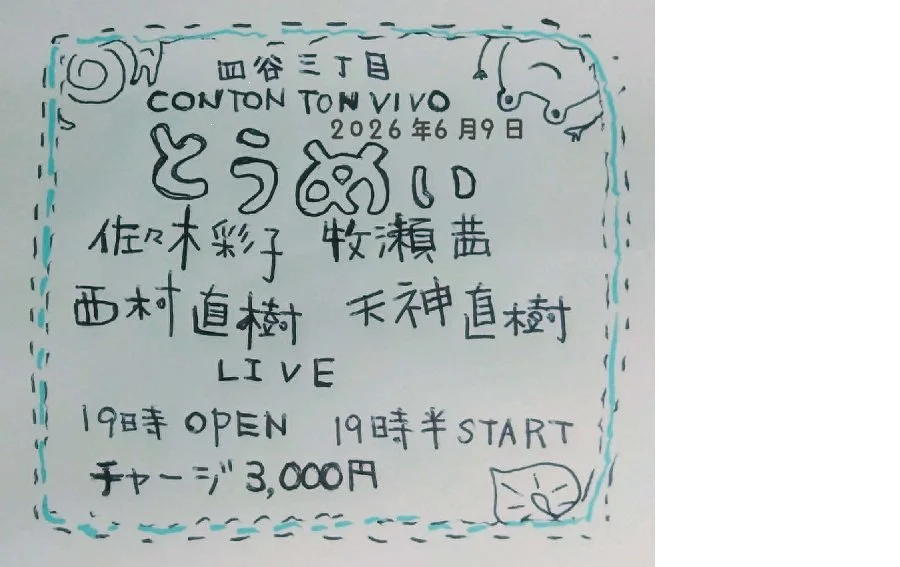 四谷三丁目
CONTON TON VIVO
2026年6月9日
とうめい
佐々木彩子 牧瀬茜
西村直樹 天神直樹
LIVE
19時 OPEN 19時半 START
チャージ 3,000円